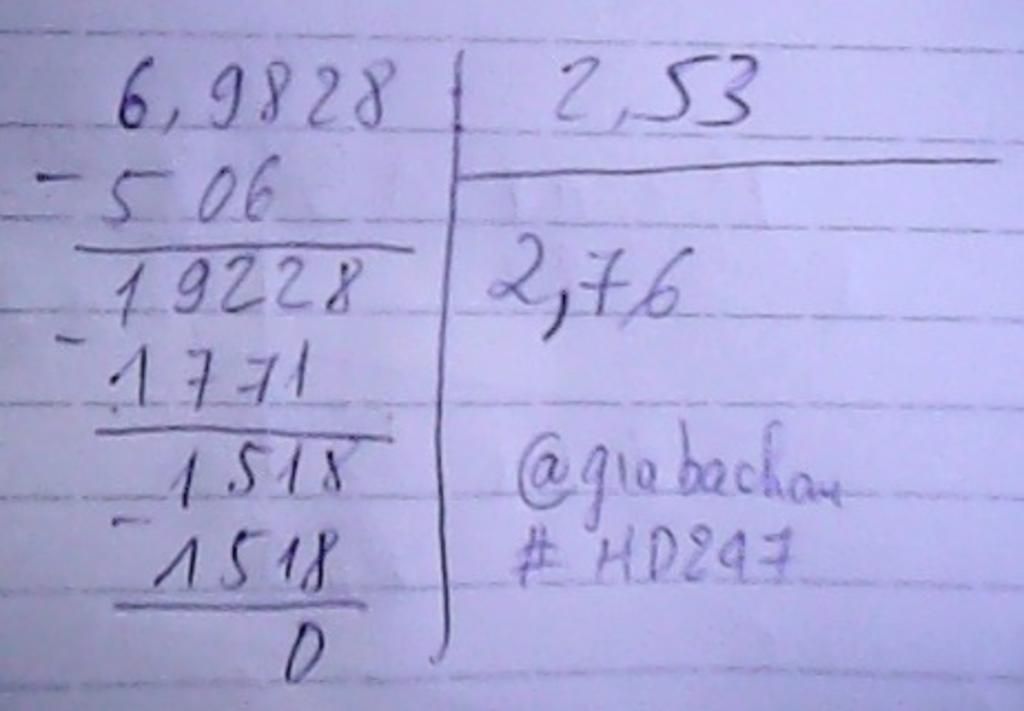 6,9828 2,53
- 5 06
19228 2,76
- 1771
1518
- 1518
0
@giabachan
# HD247